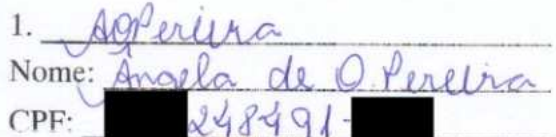 1. AOPereira
Nome: Ângela de O Pereira
CPF: 248491-